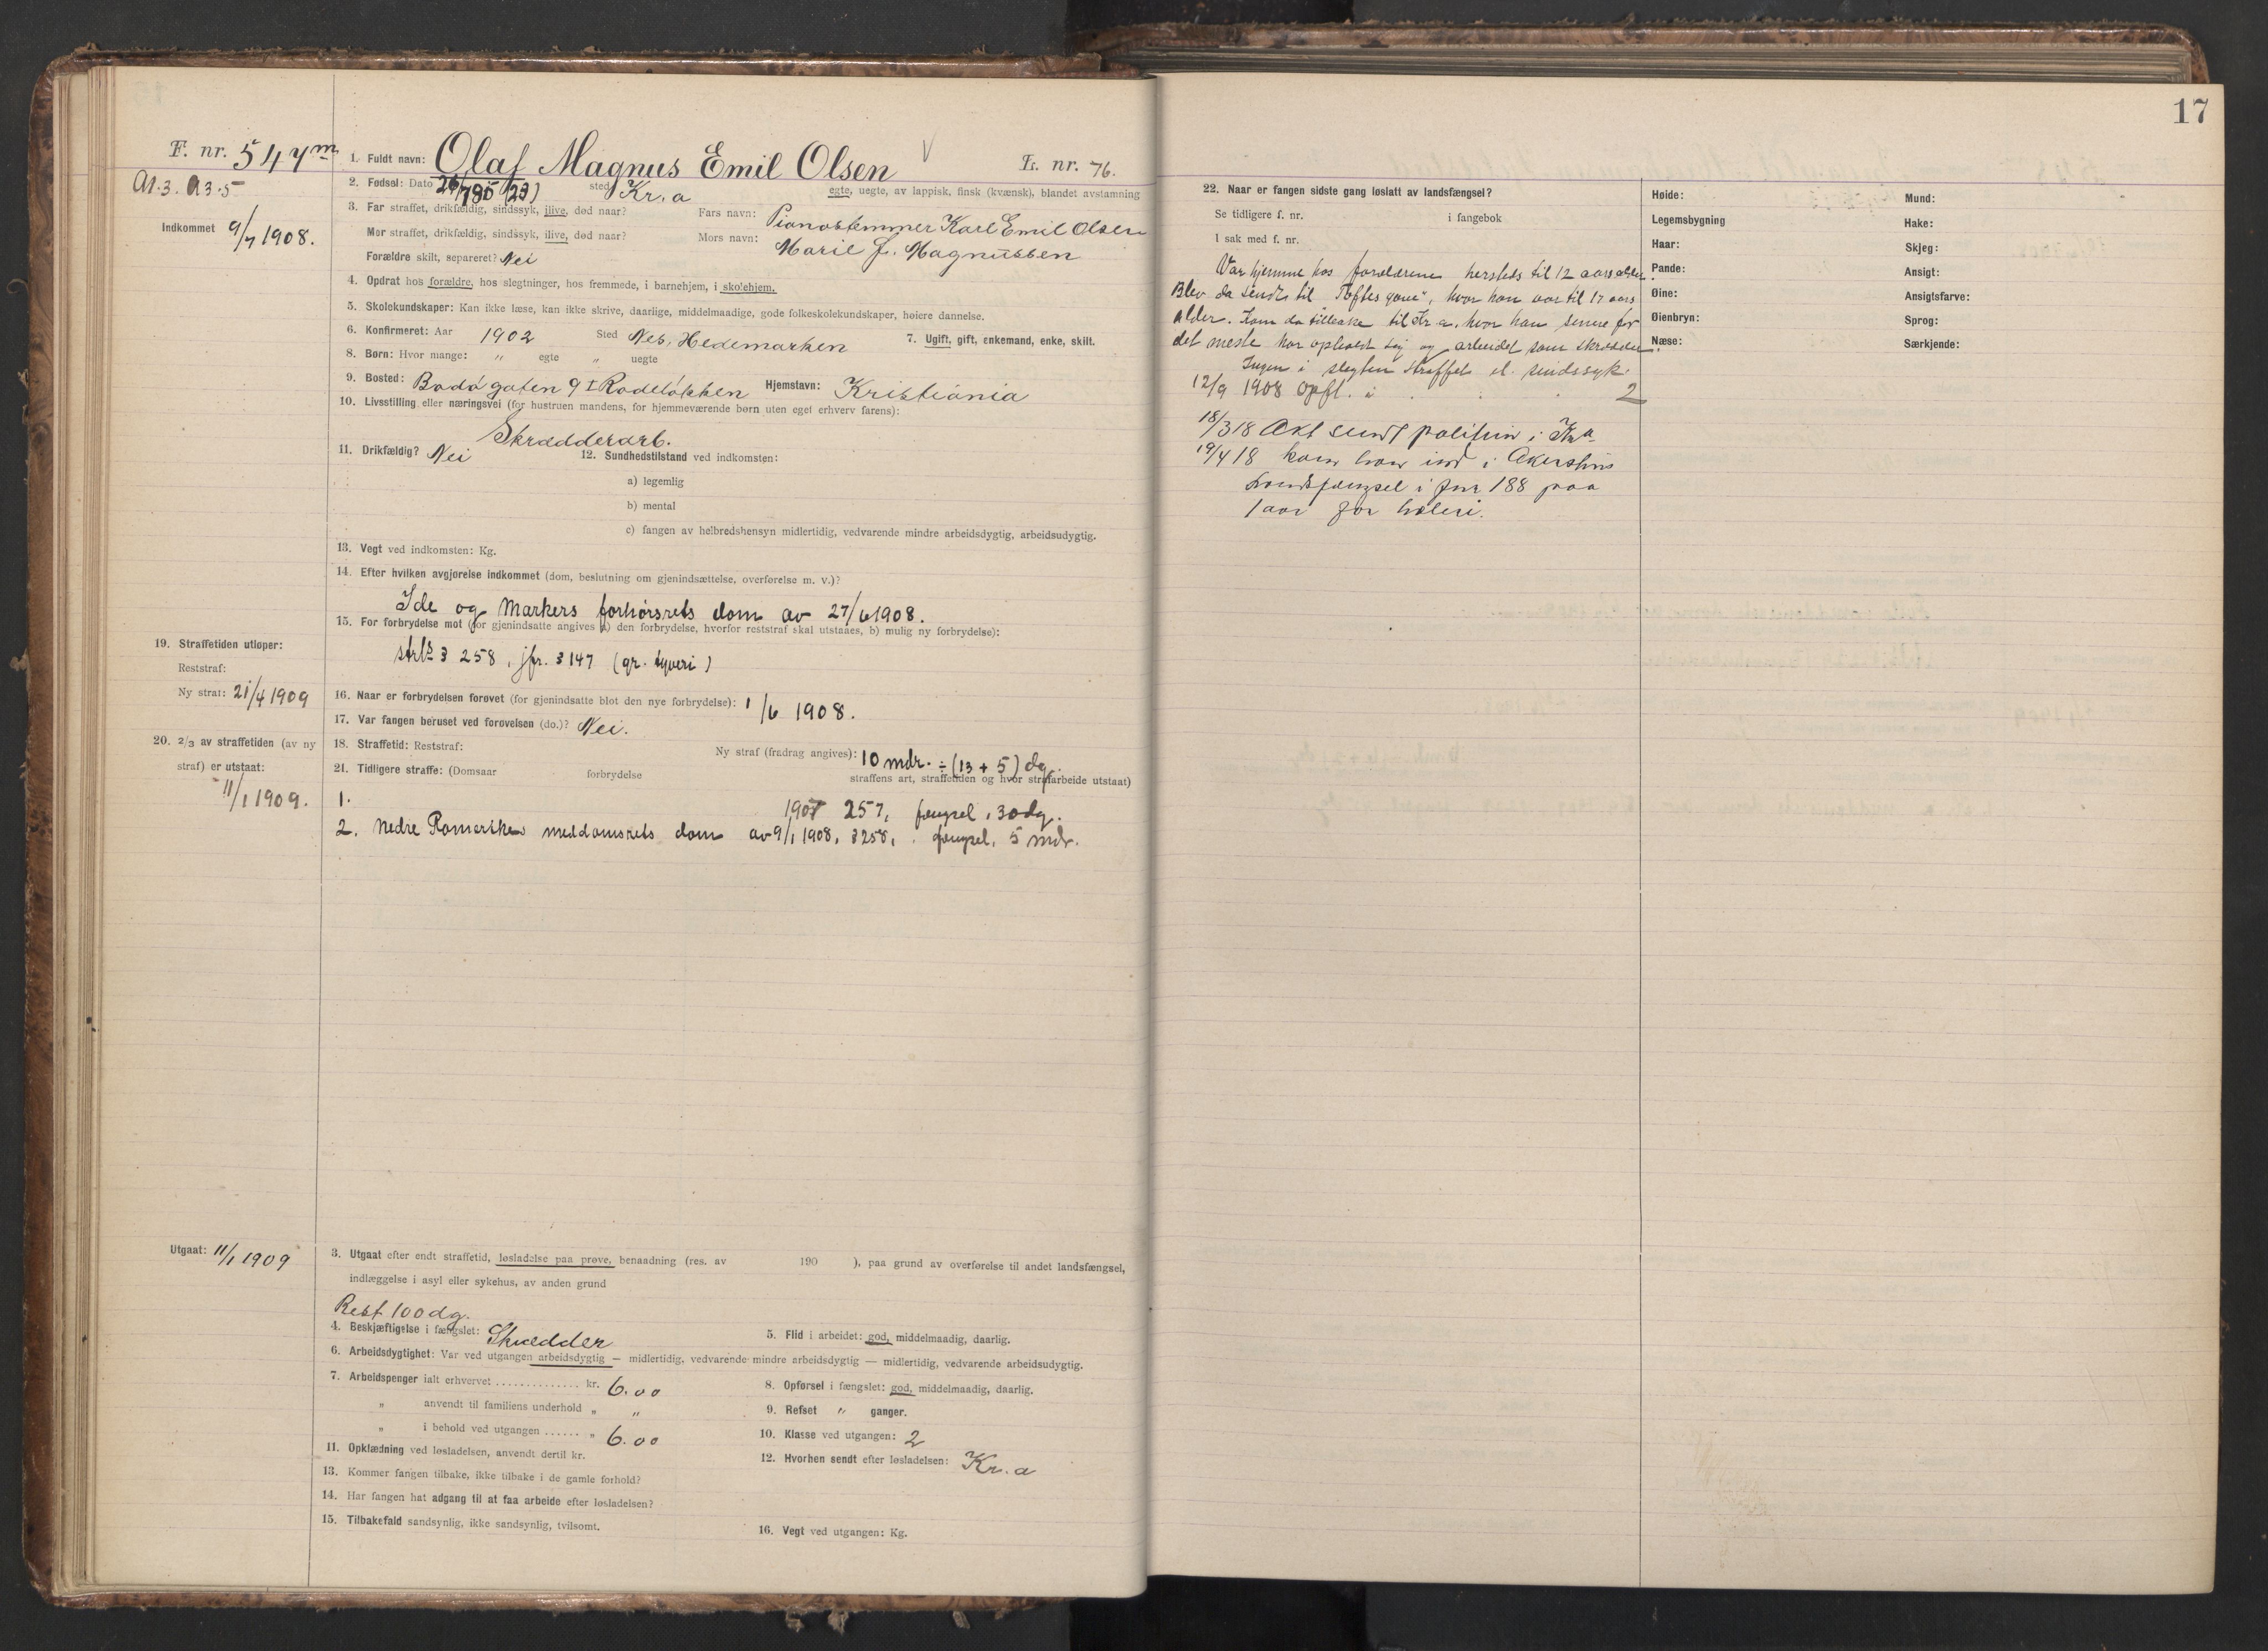 F. nr. 547 m
A1.3. A3.5
Indkommet 9/7 1908.
1. Fuldt navn: Olaf Magnus Emil Olsen
L. nr. 76.
2. Fødsel: Dato 85 (23) sted Kr.a egte, uegte, av lappisk, finsk (kvænsk), blandet avstamning
3. Far straffet, drikfældig, sindssyk, ilive, død naar? Fars navn: Pianostemmer Karl Emil Olsen
Mor straffet, drikfældig, sindssyk, ilive, død naar? Mors navn: Marie J. Magnussen
Forældre skilt, separeret? Nei
4. Opdrat hos forældre, hos slegtninger, hos fremmede, i barnehjem, i skolehjem.
5. Skolekundskaper: Kan ikke læse, kan ikke skrive, daarlige, middelmaadige, gode folkeskolekundskaper, høiere dannelse.
6. Konfirmeret: Aar 1902 Sted Nes, Hedemarken 7. Ugift, gift, enkemand, enke, skilt.
8. Børn: Hvor mange: " egte " uegte
9. Bosted: Bodø gaten 9 I Rodeløkken Hjemstavn: Kristiania
10. Livsstilling eller næringsvei (for hustruen mandens, for hjemmeværende børn uten eget erhverv farens):
Skrædderarb.
11. Drikfældig? Nei 12. Sundhedstilstand ved indkomsten:
a) legemlig
b) mental
c) fangen av helbredshensyn midlertidig, vedvarende mindre arbeidsdygtig, arbeidsudygtig.
13. Vegt ved indkomsten: Kg.
14. Efter hvilken avgjørelse indkommet (dom, beslutning om gjenindsættelse, overførelse m. v.)?
Ide og Markers forhørsrets dom av 27/6 1908.
15. For forbrydelse mot (for gjenindsatte angives a) den forbrydelse, hvorfor reststraf skal utstaaes, b) mulig ny forbrydelse):
strls § 258, jfr. § 147 (gr. tyveri)
19. Straffetiden utløper:
Reststraf:
Ny straf: 21/4 1909
16. Naar er forbrydelsen forøvet (for gjenindsatte blot den nye forbrydelse): 1/6 1908.
17. Var fangen beruset ved forøvelsen (do.)? Nei.
20. 2/3 av straffetiden (av ny straf) er utstaat:
11/1 1909.
18. Straffetid: Reststraf: Ny straf (fradrag angives): 10 mdr. ÷ (13 + 5) dg.
21. Tidligere straffe: (Domsaar forbrydelse straffens art, straffetiden og hvor strafarbeide utstaat)
1. 1907 257, fængsel, 30 dg.
2. Nedre Romerikes meddomsrets dom av 9/1 1908, § 258, fængsel, 5 mdr.
Utgaat: 11/1 1909
3. Utgaat efter endt straffetid, løsladelse paa prøve, benaadning (res. av 190 ), paa grund av overførelse til andet landsfængsel,
indlæggelse i asyl eller sykehus, av anden grund
Rest 100 dg.
4. Beskjæftigelse i fængslet: Skrædder 5. Flid i arbeidet: god, middelmaadig, daarlig.
6. Arbeidsdygtighet: Var ved utgangen arbeidsdygtig — midlertidig, vedvarende mindre arbeidsdygtig — midlertidig, vedvarende arbeidsudygtig.
7. Arbeidspenger ialt erhvervet .............. kr. 6.00 8. Opførsel i fængslet: god, middelmaadig, daarlig.
" anvendt til familiens underhold " " 9. Refset " ganger.
" i behold ved utgangen ...... " 6.00 10. Klasse ved utgangen: 2
11. Opklædning ved løsladelsen, anvendt dertil kr. 12. Hvorhen sendt efter løsladelsen: Kr.a
13. Kommer fangen tilbake, ikke tilbake i de gamle forhold?
14. Har fangen hat adgang til at faa arbeide efter løsladelsen?
15. Tilbakefald sandsynlig, ikke sandsynlig, tvilsomt. 16. Vegt ved utgangen: Kg.
17
22. Naar er fangen sidste gang løslatt av landsfængsel?
Se tidligere f. nr. i fangebok
I sak med f. nr.
Var hjemme hos forældrene hersteds til 12 aarsalder.
Blev da sendt til "Toftes gave", hvor han var til 17 aars
alder. Kom da tilbake til Kr.a, hvor han senere for
det meste har opholdt sig og arbeidet som skrædder.
Ingen i slegten straffet el. sindssyk.
12/9 1908 opfl. i 2
18/3 18 Akt sendt politiet i Kra
19/4 18 kom han ind i Akershus
Landsfængsel i fnr 188 paa
1 aar for heleri.
Høide: Mund:
Legemsbygning Hake:
Haar: Skjeg:
Pande: Ansigt:
Øine: Ansigtsfarve:
Øienbryn: Sprog:
Næse: Særkjende: